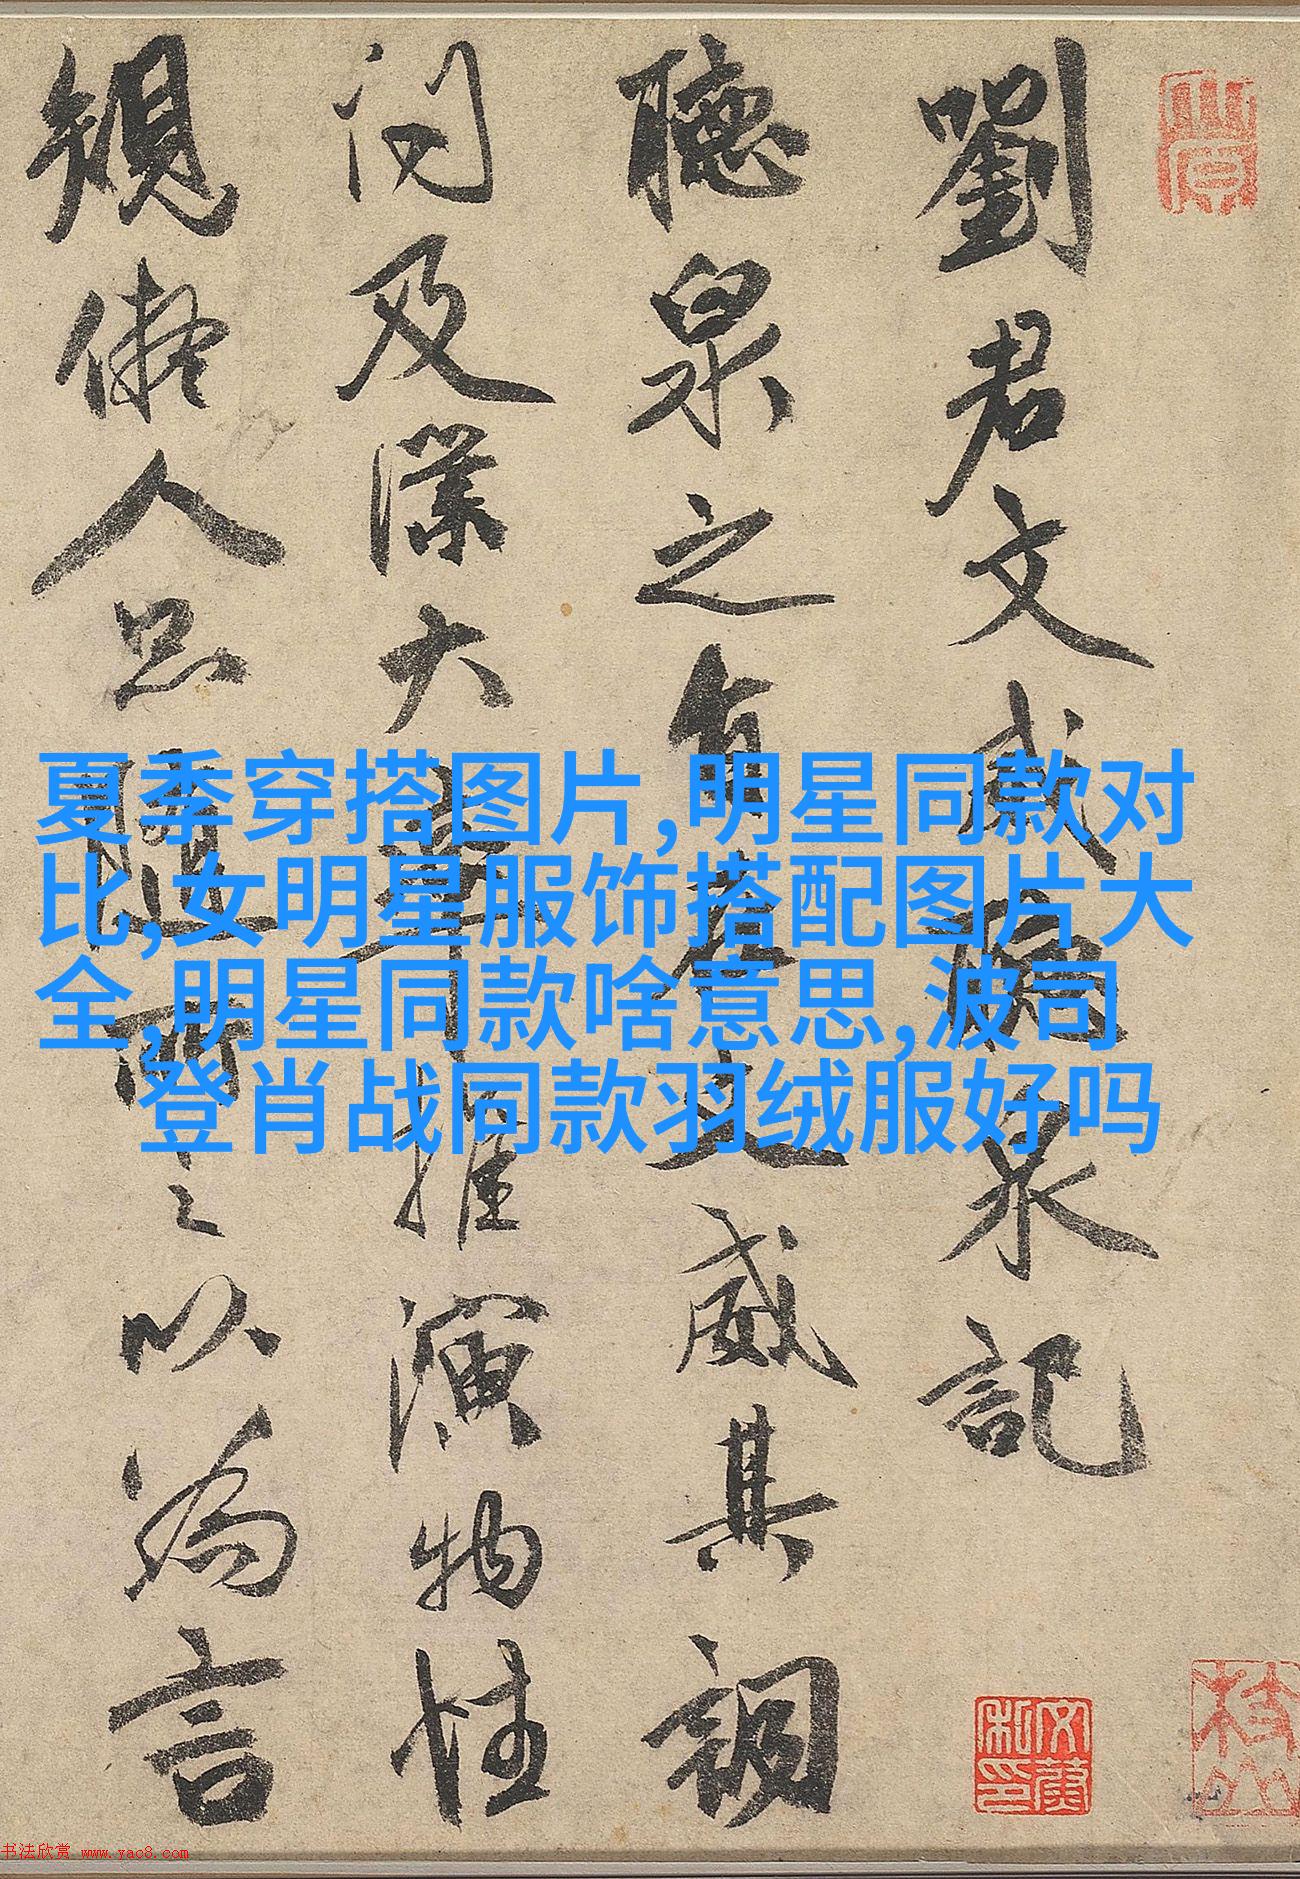 劉君文泉記
聽泉之有文威其調
及大推演物性
規儗人品以為言
夏季穿搭图片,明星同款对
比,女明星服饰搭配图片大
全,明星同款啥意思,波司
登肖战同款羽绒服好吗
书法欣赏 www.yac8.com